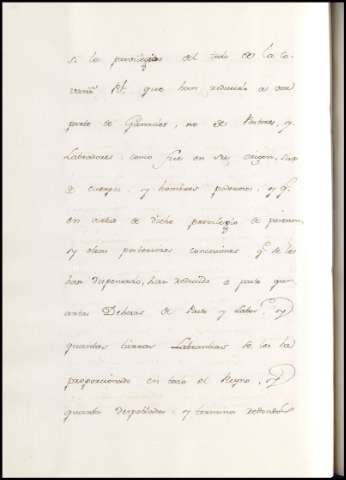 si los privilegios del todo de la Ca-
vaña Rl. que han reducido a una
junta de Ganados, no de Pastores, y
Labradores, como fue en su origen, sino
de cuerpos, y hombres poderosos, y qe.
en virtud de dicho privilegio de
y otras posteriores concesiones qe. se les
han dispensado, han reducido a pasto qu-
antas Dehesas de Pasto y Labor, y
quantas tierras Labrantias se les ha
proporcionado en todo el Reyno, y
quantos despoblados, y terminos redondos